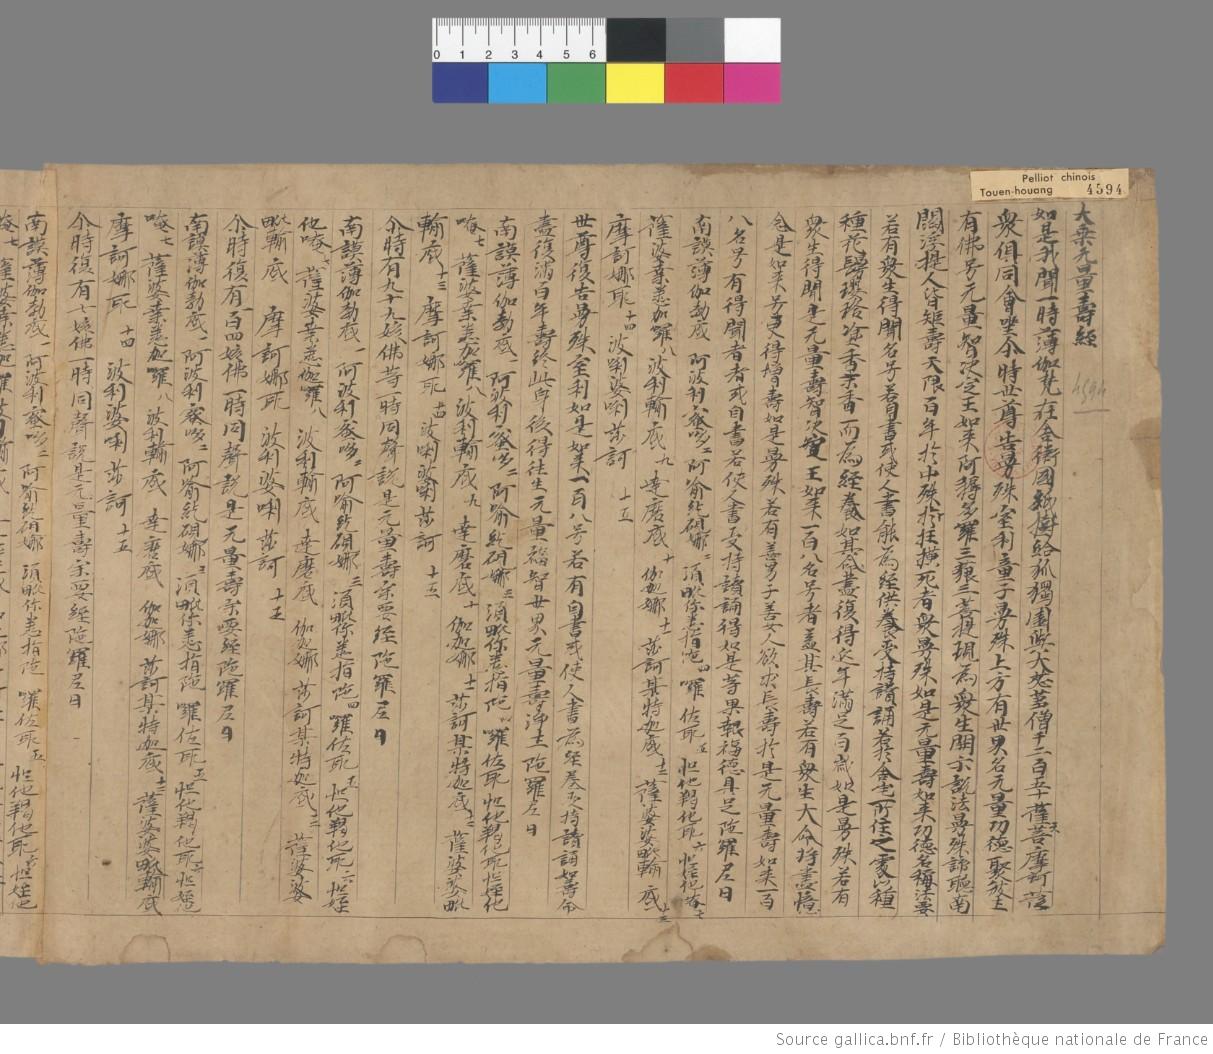 Pelliot chinois
Touen-houang 4594
0 1 2 3 4 5 6
大乘无量壽經
4594
如是我聞一時薄伽梵在舍衛國祇樹給孤獨園與大苾芻僧千二百五十人菩薩摩訶薩
眾俱同會坐尒時世尊告曼殊室利童子曼殊上方有世界名无量功德聚彼土
有佛号无量智决定王如来阿耨多羅三藐三菩提現為眾生開示說法曼殊諦聽南
閻浮提人皆短壽大限百年於中殀抂橫死者眾曼殊如是无量壽如来功德名稱法要
若有眾生得聞名号若自書或使人書能為經供養受持讀誦若於舍宅所住之處以種
種花鬘瓔珞塗香末香而為經養如其命盡復得延年滿足百歲如是曼殊若有
眾生得聞是无量壽智决定王如来一百八名号者益其長壽若有眾生大命將盡憶
念是如来号更得增壽如是曼殊若有善男子善女人欲求長壽於是无量壽如来一百
八名号有得聞者或自書若使人書受持讀誦得如是等果報福德具足陁羅尼曰
南謨薄伽勃底一 阿波利蜜哆二 阿喻紇硯娜三 須毗你悉指陁四 囉佐耶五 怛他羯他耶六 怛姪他唵七
薩婆桑悉伽囉八 波利輸底九 達磨底十 伽伽娜十一 莎訶某特伽底十二 薩婆婆毗輸底十三
摩訶娜耶十四 波利婆唎莎訶十五
世尊復告曼殊室利如是如来一百八号若有自書或使人書為經卷受持讀誦如壽命
盡復滿百年壽終此身後得往生无量福智世界无量壽淨土陁羅尼曰
南謨薄伽勃底一 阿波利蜜哆二 阿喻紇硯娜三 須毗你悉指陁四 囉佐耶 怛他羯他耶 怛姪他
唵七 薩婆桑悉伽囉八 波利輸底九 達磨底十 伽伽娜十一 莎訶某特伽底十二 薩婆婆毗
輸底十三 摩訶娜耶十四 波利婆唎莎訶十五
尒時有九十九姟佛等一時同聲說是无量壽宗要經陁羅尼曰
南謨薄伽勃底一 阿波利蜜哆二 阿喻紇硯娜三 須毗你悉指陁四 囉佐耶五 怛他羯他耶六 怛姪
他唵七 薩婆桑悉伽囉八 波利輸底 達磨底 伽伽娜 莎訶某特伽底十二 薩婆婆
毗輸底 摩訶娜耶 波利婆唎莎訶十五
尒時復有一百四姟佛一時同聲說是无量壽宗要經陁羅尼曰
南謨薄伽勃底一 阿波利蜜哆二 阿喻紇硯娜三 須毗你悉指陁 囉佐耶五 怛他羯他耶六 怛姪他
唵七 薩婆桑悉伽囉八 波利輸底 達磨底 伽伽娜 莎訶某特伽底十二 薩婆婆毗輸底
摩訶娜耶十四 波利婆唎莎訶十五
尒時復有七姟佛一時同聲說是无量壽宗要經陁羅尼曰
南謨薄伽勃底一 阿波利蜜哆二 阿喻紇硯娜 須毗你悉指陁 囉佐耶五 怛他羯他耶六 怛姪他
唵七 薩婆桑悉伽囉
Source gallica.bnf.fr / Bibliothèque nationale de France